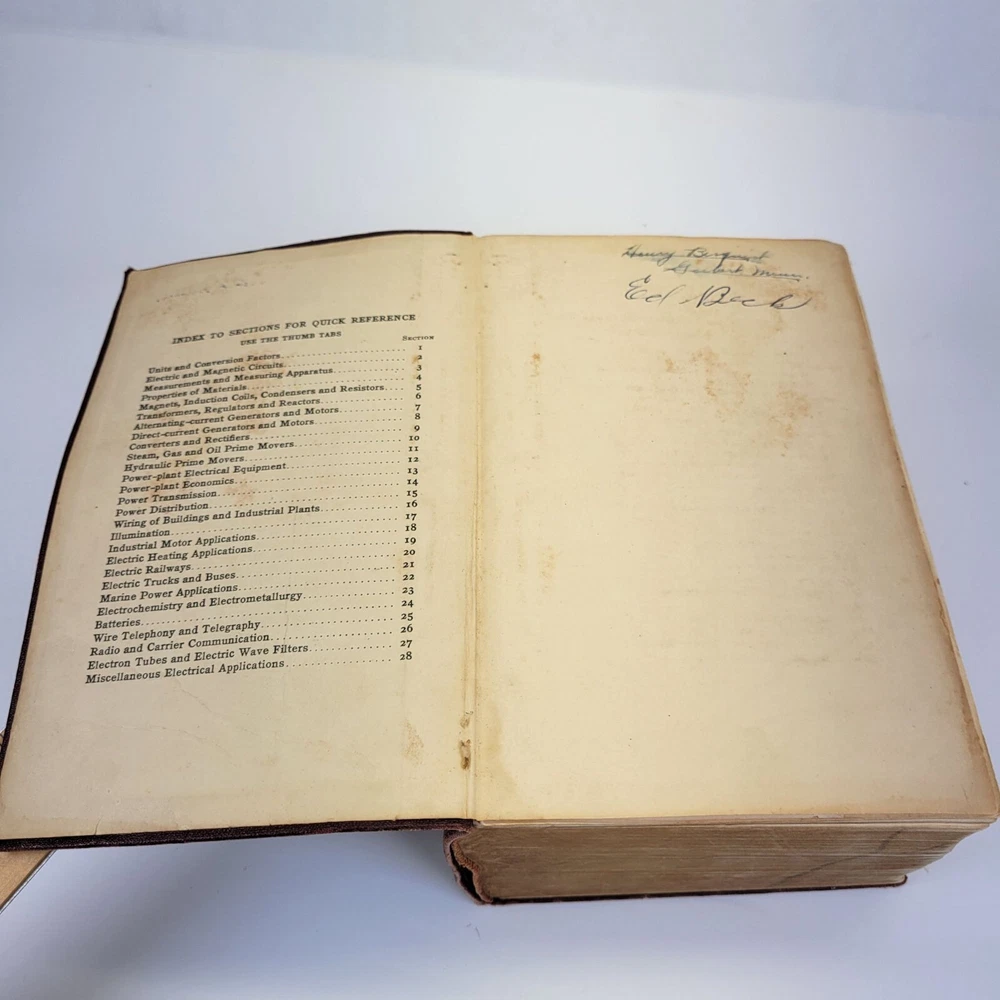 INDEX TO SECTIONS FOR QUICK REFERENCE
USE THE THUMB TABS
SECTION
Units and Conversion Factors 1
Electric and Magnetic Circuits 2
Measurements and Measuring Apparatus 3
Properties of Materials 4
Magnets, Induction Coils, Condensers and Resistors 5
Transformers, Regulators and Reactors 6
Alternating-current Generators and Motors 7
Direct-current Generators and Motors 8
Converters and Rectifiers 9
Steam, Gas and Oil Prime Movers 10
Hydraulic Prime Movers 11
Power-plant Electrical Equipment 12
Power-plant Economics 13
Power Transmission 14
Power Distribution 15
Wiring of Buildings and Industrial Plants 16
Illumination 17
Industrial Motor Applications 18
Electric Heating Applications 19
Electric Railways 20
Electric Trucks and Buses 21
Marine Power Applications 22
Electrochemistry and Electrometallurgy 23
Batteries 24
Wire Telephony and Telegraphy 25
Radio and Carrier Communication 26
Electron Tubes and Electric Wave Filters 27
Miscellaneous Electrical Applications 28
Henry
Ed Beck